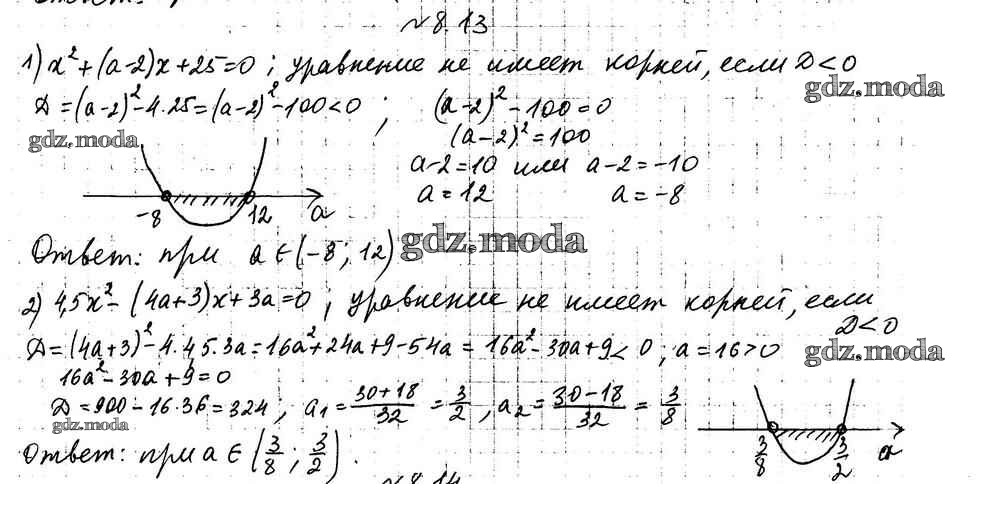 №8.13
1) x² + (a-2)x + 25 = 0 ; уравнение не имеет корней, если D < 0
gdz.moda
D = (a-2)² - 4·25 = (a-2)² - 100 < 0 ; (a-2)² - 100 = 0
gdz.moda
(a-2)² = 100
a-2 = 10 или a-2 = -10
a = 12 a = -8
-8 12 a
Ответ: при a ∈ (-8 ; 12)
gdz.moda
2) 4,5x² - (4a+3)x + 3a = 0 ; уравнение не имеет корней, если
D < 0
D = (4a+3)² - 4·4,5·3a = 16a² + 24a + 9 - 54a = 16a² - 30a + 9 < 0 ; a = 16 > 0
gdz.moda
16a² - 30a + 9 = 0
D = 900 - 16·36 = 324 ; a₁ = (30+18)/32 = 3/2 , a₂ = (30-18)/32 = 3/8
gdz.moda
3/8 3/2 a
Ответ: при a ∈ (3/8 ; 3/2).